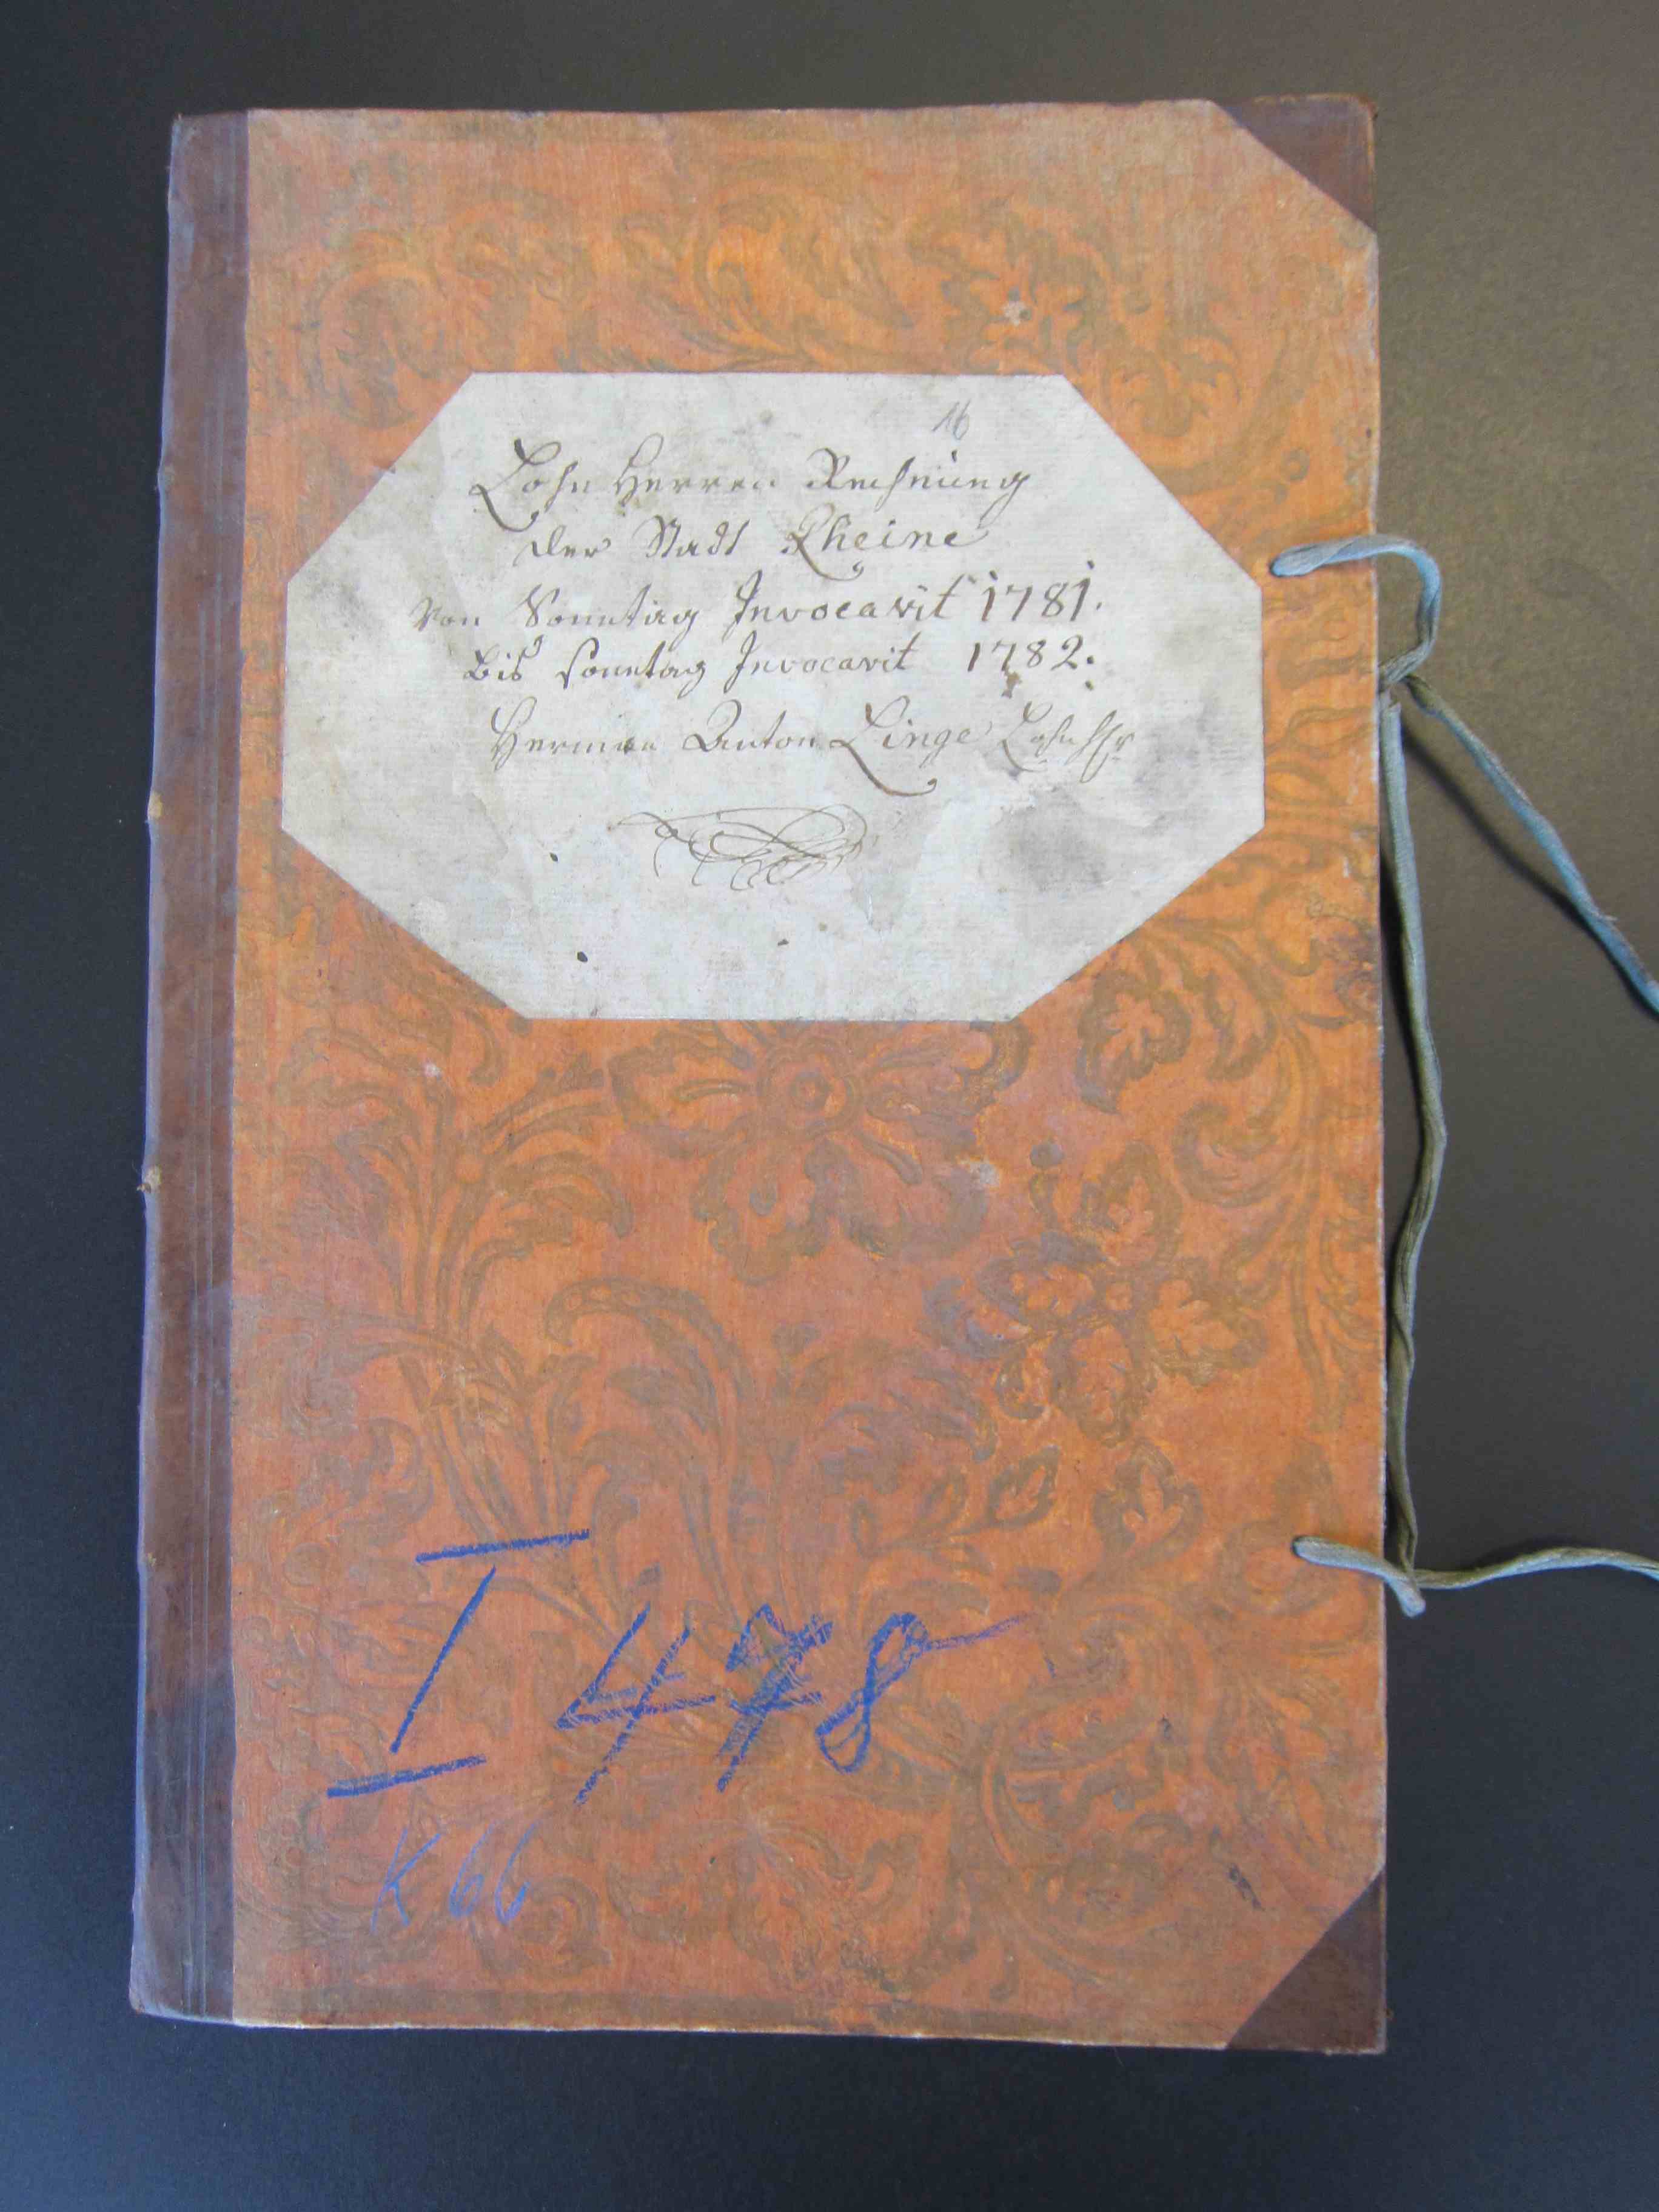 16
Lohn Herren Rechnung
der Stadt Rheine
von Sonntag Invocavit 1781.
bis sonntag Invocavit 1782.
Herman Anton Linge Lohnhr
I 478
K 66